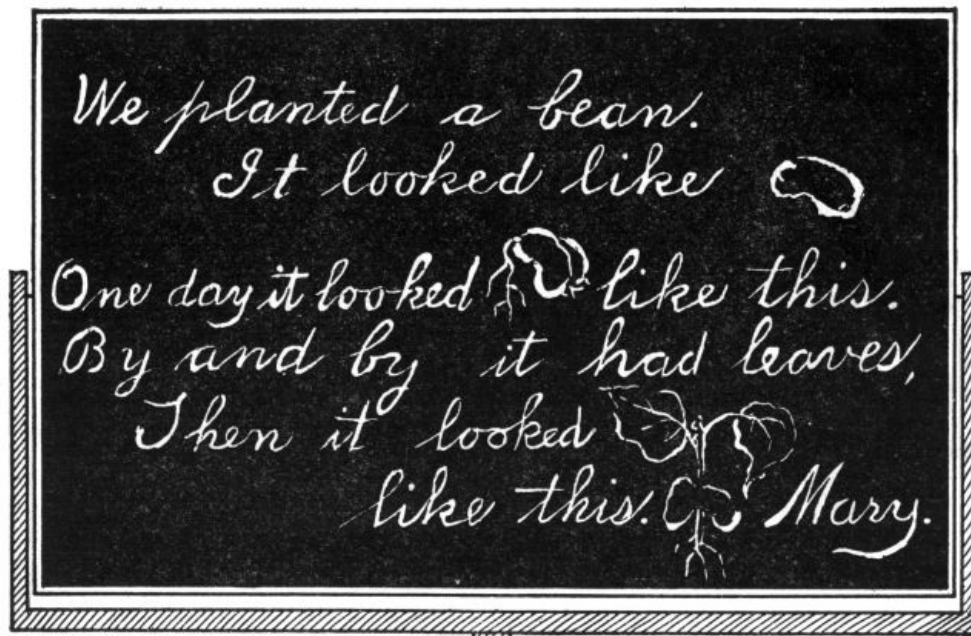 We planted a bean.
It looked like
One day it looked like this.
By and by it had leaves,
Then it looked
like this. Mary.